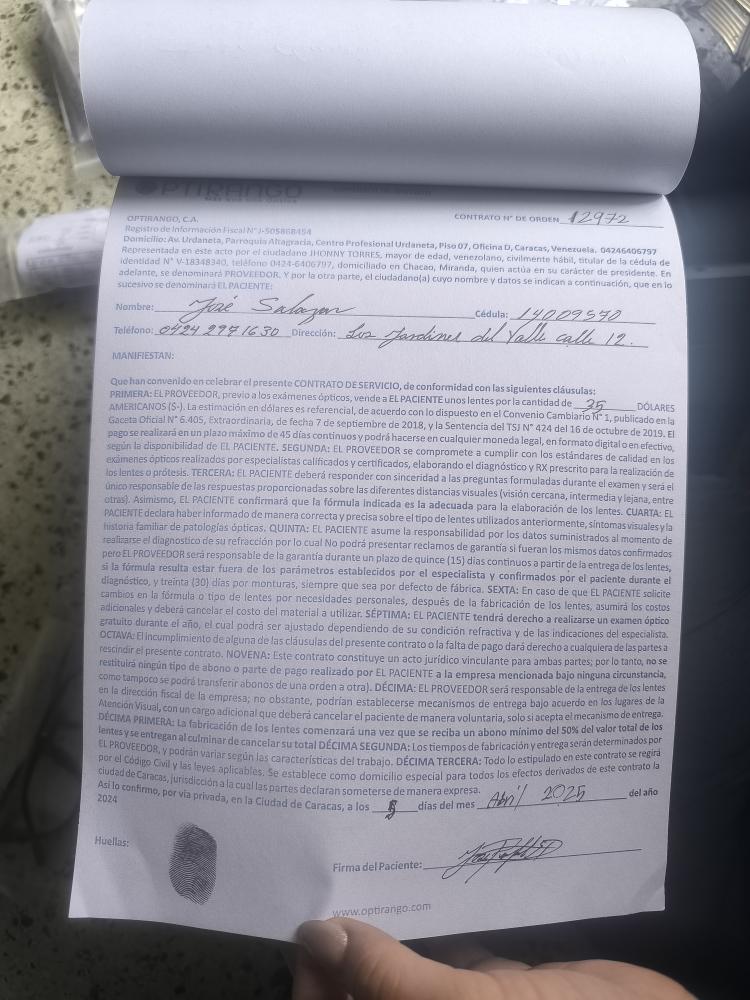 OPTIRANGO
CONTRATO N° DE ORDEN 12972
OPTIRANGO, C.A.
Registro de Información Fiscal N° J-505868454
Domicilio: Av. Urdaneta, Parroquia Altagracia, Centro Profesional Urdaneta, Piso 07, Oficina D, Caracas, Venezuela. 04246406797
Representada en este acto por el ciudadano JHONNY TORRES, mayor de edad, venezolano, civilmente hábil, titular de la cédula de
identidad N° V-18348340, teléfono 0424-6406797, domiciliado en Chacao, Miranda, quien actúa en su carácter de presidente. En
adelante, se denominará PROVEEDOR. Y por la otra parte, el ciudadano(a) cuyo nombre y datos se indican a continuación, que en lo
sucesivo se denominará EL PACIENTE:
Nombre: José Salazar Cédula: 14009570
Teléfono: 0424 297 16 30 Dirección: Los Jardines del Valle calle 12.
MANIFIESTAN:
Que han convenido en celebrar el presente CONTRATO DE SERVICIO, de conformidad con las siguientes cláusulas:
PRIMERA: EL PROVEEDOR, previo a los exámenes ópticos, vende a EL PACIENTE unos lentes por la cantidad de 35 DÓLARES
AMERICANOS ($-). La estimación en dólares es referencial, de acuerdo con lo dispuesto en el Convenio Cambiario N° 1, publicado en la
Gaceta Oficial N° 6.405, Extraordinaria, de fecha 7 de septiembre de 2018, y la Sentencia del TSJ N° 424 del 16 de octubre de 2019. El
pago se realizará en un plazo máximo de 45 días continuos y podrá hacerse en cualquier moneda legal, en formato digital o en efectivo,
según la disponibilidad de EL PACIENTE. SEGUNDA: EL PROVEEDOR se compromete a cumplir con los estándares de calidad en los
exámenes ópticos realizados por especialistas calificados y certificados, elaborando el diagnóstico y RX prescrito para la realización de
los lentes o prótesis. TERCERA: EL PACIENTE deberá responder con sinceridad a las preguntas formuladas durante el examen y será el
único responsable de las respuestas proporcionadas sobre las diferentes distancias visuales (visión cercana, intermedia y lejana, entre
otras). Asimismo, EL PACIENTE confirmará que la fórmula indicada es la adecuada para la elaboración de los lentes. CUARTA: EL
PACIENTE declara haber informado de manera correcta y precisa sobre el tipo de lentes utilizados anteriormente, síntomas visuales y la
historia familiar de patologías ópticas. QUINTA: EL PACIENTE asume la responsabilidad por los datos suministrados al momento de
realizarse el diagnostico de su refracción por lo cual No podrá presentar reclamos de garantía si fueran los mismos datos confirmados
pero EL PROVEEDOR será responsable de la garantía durante un plazo de quince (15) días continuos a partir de la entrega de los lentes,
si la fórmula resulta estar fuera de los parámetros establecidos por el especialista y confirmados por el paciente durante el
diagnóstico, y treinta (30) días por monturas, siempre que sea por defecto de fábrica. SEXTA: En caso de que EL PACIENTE solicite
cambios en la fórmula o tipo de lentes por necesidades personales, después de la fabricación de los lentes, asumirá los costos
adicionales y deberá cancelar el costo del material a utilizar. SÉPTIMA: EL PACIENTE tendrá derecho a realizarse un examen óptico
gratuito durante el año, el cual podrá ser ajustado dependiendo de su condición refractiva y de las indicaciones del especialista.
OCTAVA: El incumplimiento de alguna de las cláusulas del presente contrato o la falta de pago dará derecho a cualquiera de las partes a
rescindir el presente contrato. NOVENA: Este contrato constituye un acto jurídico vinculante para ambas partes; por lo tanto, no se
restituirá ningún tipo de abono o parte de pago realizado por EL PACIENTE a la empresa mencionada bajo ninguna circunstancia,
como tampoco se podrá transferir abonos de una orden a otra). DÉCIMA: EL PROVEEDOR será responsable de la entrega de los lentes
en la dirección fiscal de la empresa; no obstante, podrían establecerse mecanismos de entrega bajo acuerdo en los lugares de la
Atención Visual, con un cargo adicional que deberá cancelar el paciente de manera voluntaria, solo si acepta el mecanismo de entrega.
DÉCIMA PRIMERA: La fabricación de los lentes comenzará una vez que se reciba un abono mínimo del 50% del valor total de los
lentes y se entregan al culminar de cancelar su total DÉCIMA SEGUNDA: Los tiempos de fabricación y entrega serán determinados por
EL PROVEEDOR, y podrán variar según las características del trabajo. DÉCIMA TERCERA: Todo lo estipulado en este contrato se regirá
por el Código Civil y las leyes aplicables. Se establece como domicilio especial para todos los efectos derivados de este contrato la
ciudad de Caracas, jurisdicción a la cual las partes declaran someterse de manera expresa.
Así lo confirmo, por via privada, en la Ciudad de Caracas, a los 5 días del mes Abril 2025 del año
2024
Huellas:
Firma del Paciente:
www.optirango.com